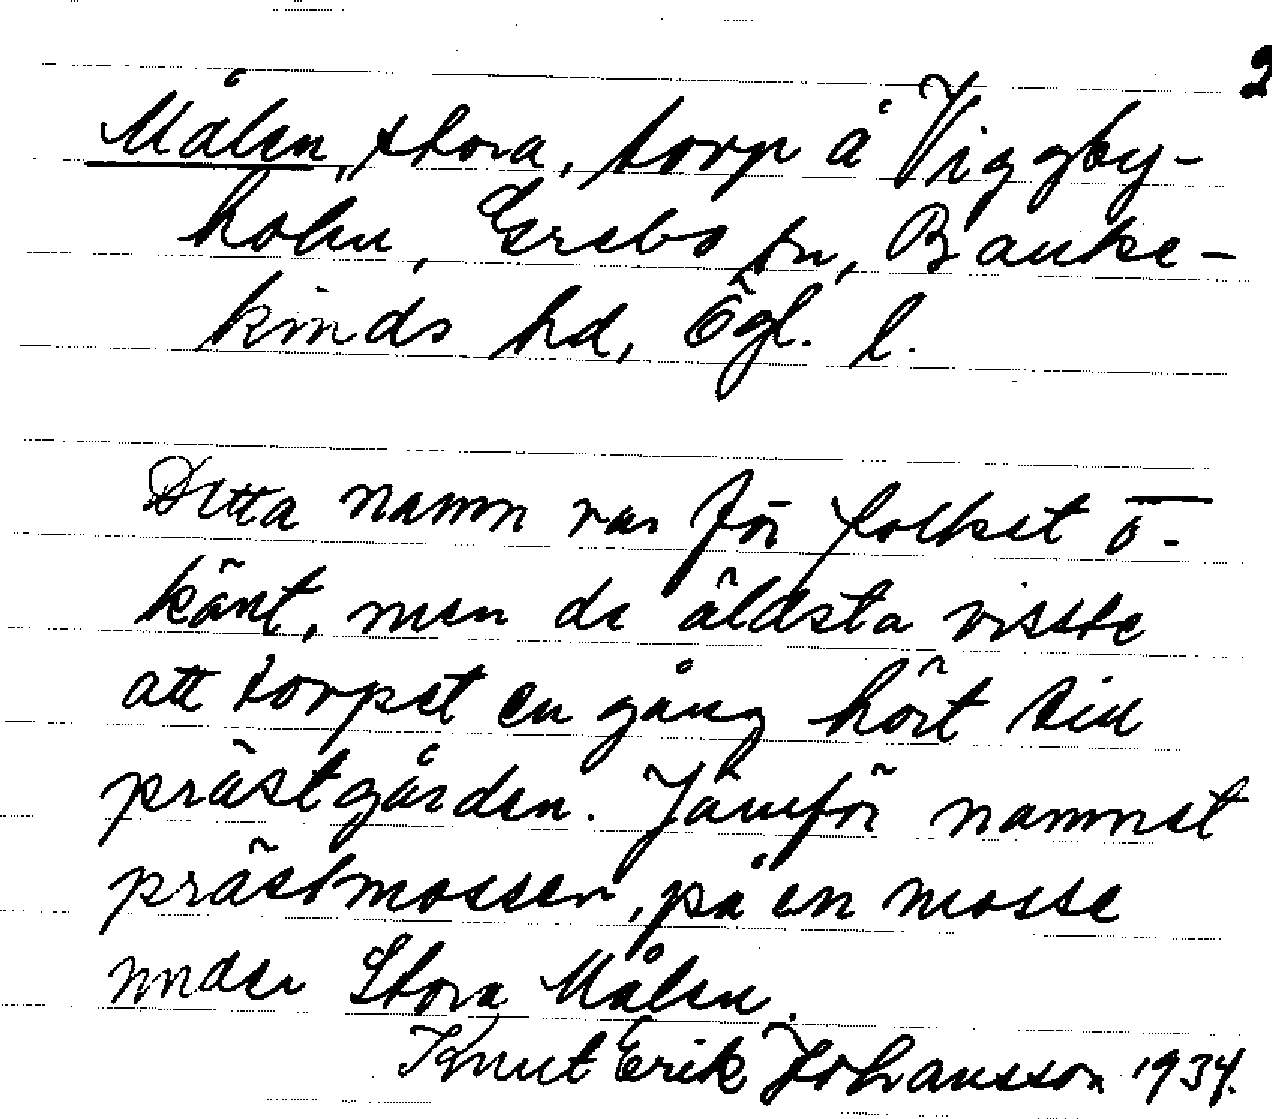 2
Målen, stora, torp å Viggby-
holm, Grebo sn, Banke-
kinds hd, Ögl. l.
Detta namn var för folket o-
känt, men de äldsta visste
att torpet en gång hört till
prästgården. Jämför namnet
prästmossen, på en mosse
under Stora Målen.
Knut Erik Johansson 1934.